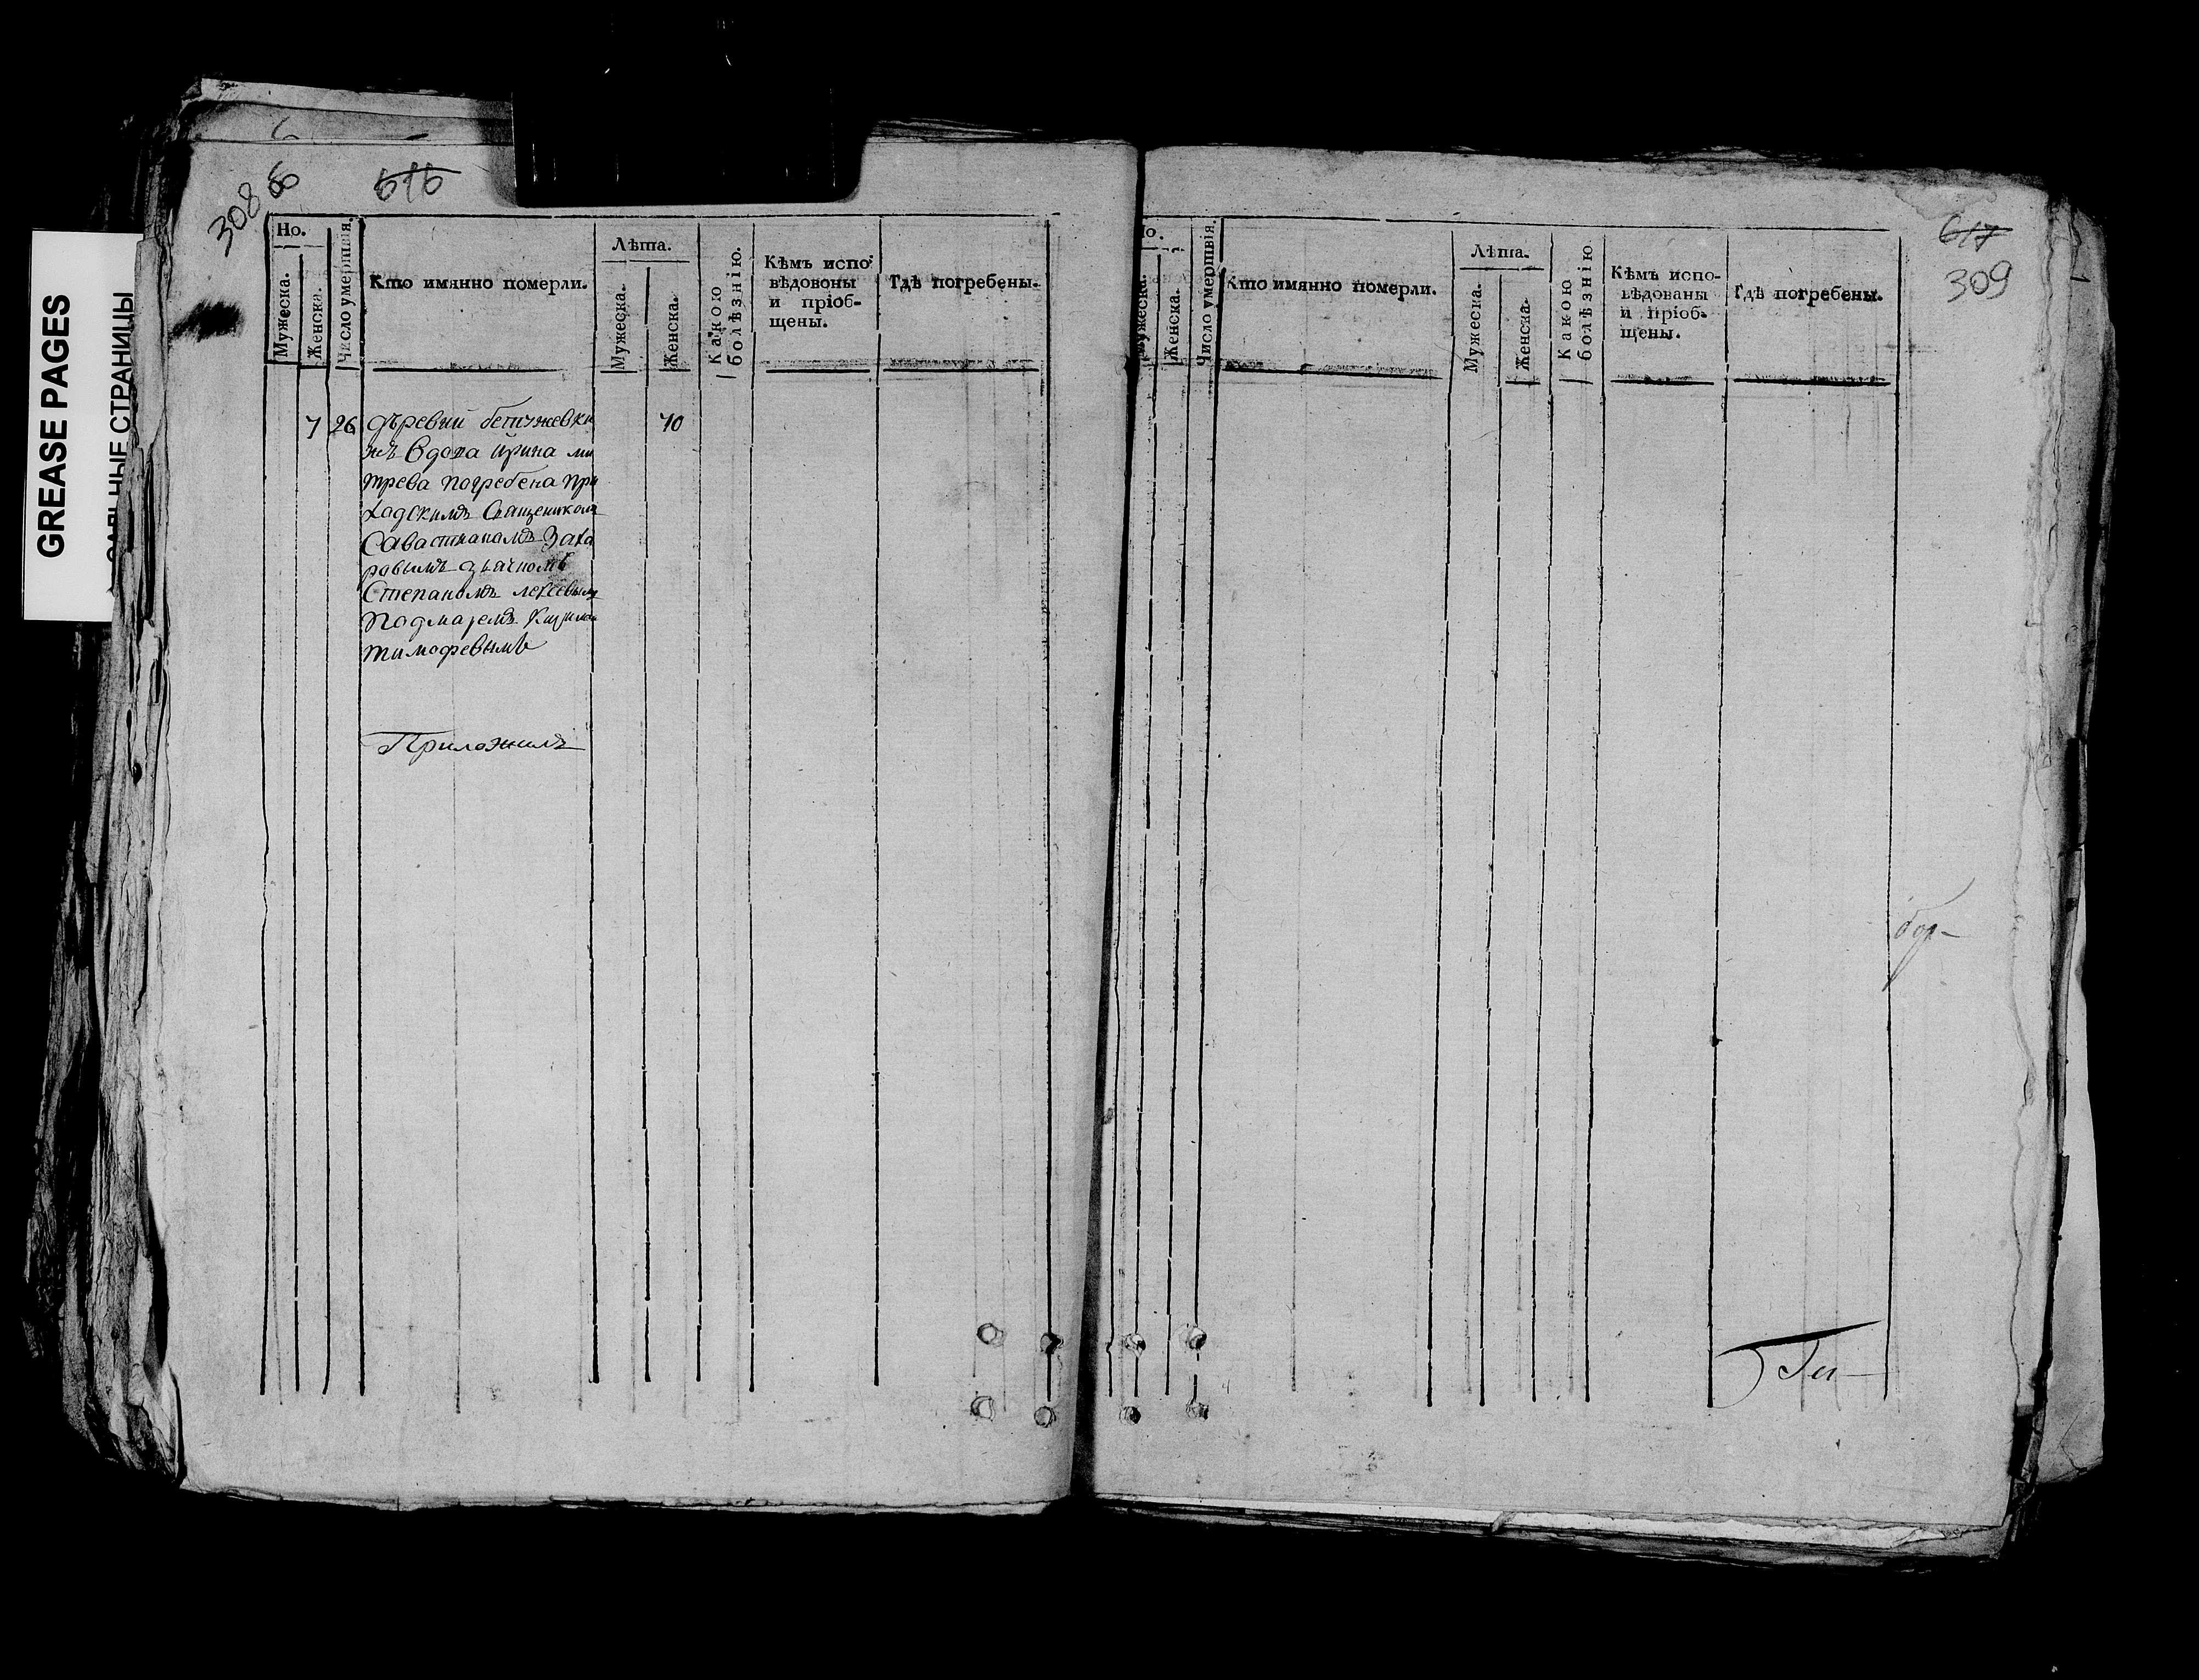 GREASE PAGES
САЛЬНЫЕ СТРАНИЦЫ
308 об
616
Но.
Мужеска.
Женска.
Число умершвія.
Кто имянно померли.
Лѣта.
Мужеска.
Женска.
Какою болѣзнію.
Кѣмъ испо-
вѣдовоны
и пріоб-
щены.
Гдѣ погребены.
7 26 деревни бетужевки 70
жъ вдова ирина ми
трева погребена при
хадскимъ священикомъ
Савастианамъ Заха
равымъ дьячкомъ
Степаномъ лексевымъ
Понамаремъ
тимофевымъ
Приложилъ
617
309
Но.
Мужеска.
Женска.
Число умершвія.
Кто имянно померли.
Лѣта.
Мужеска.
Женска.
Какою болѣзнію
Кѣмъ испо-
вѣдованы
и пріоб-
щены.
Гдѣ погребены.